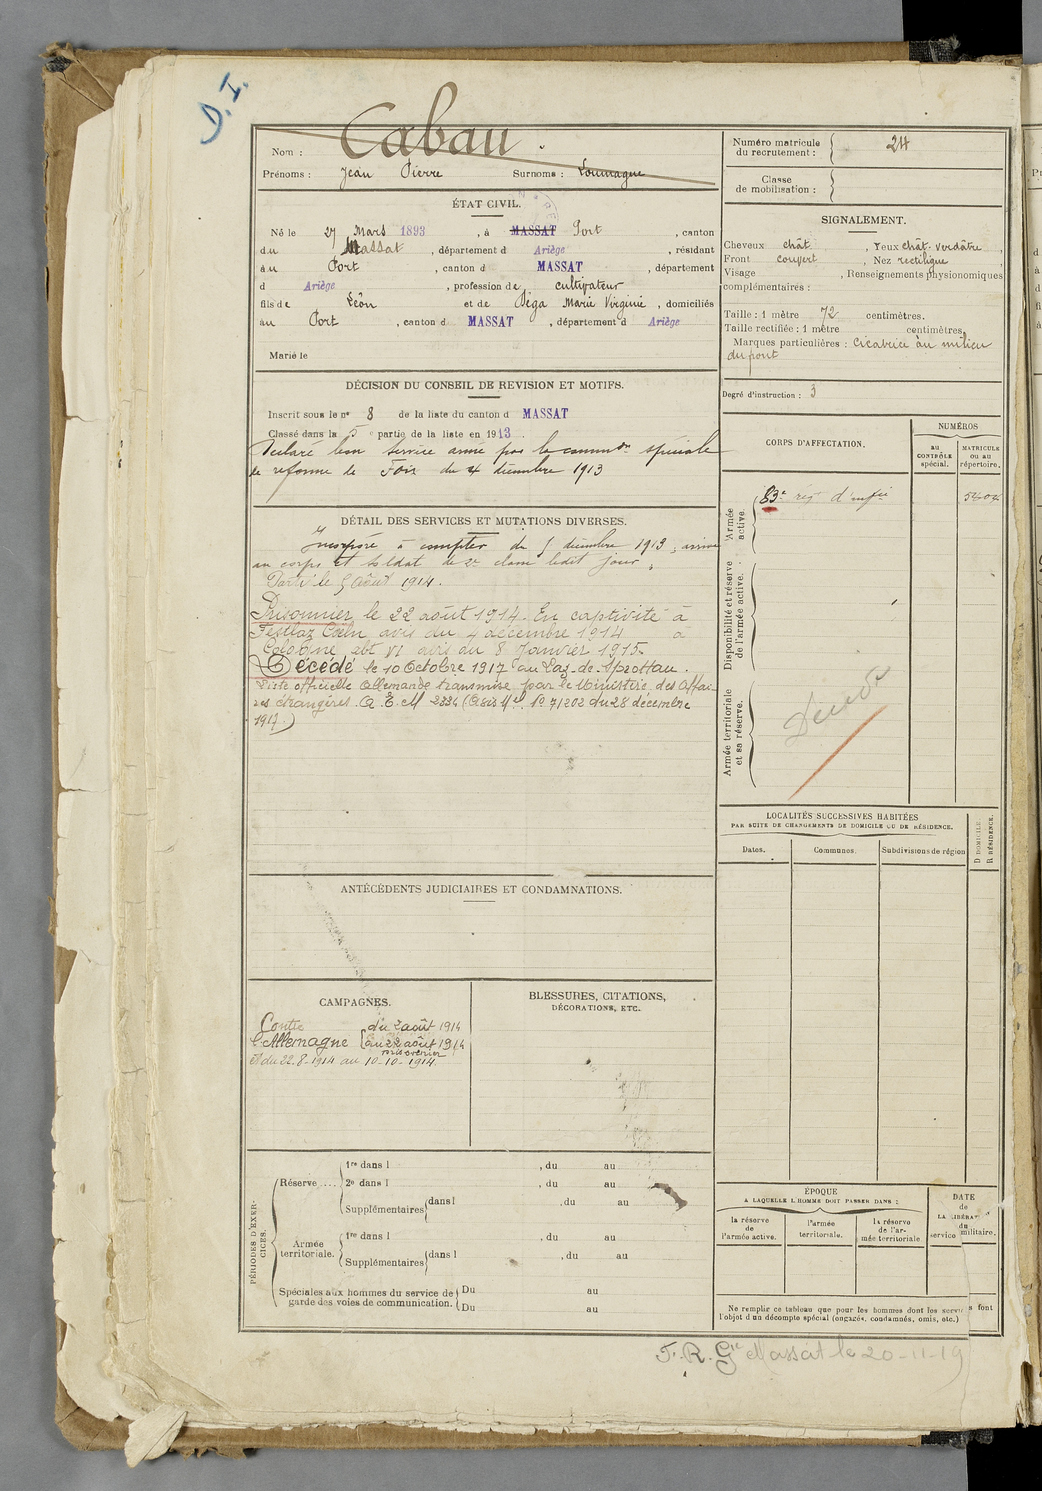 D. I.
Caban
Nom :
Prénoms : Jean Pierre Surnoms : Loumagne
ÉTAT CIVIL.
Né le 27 Mars 1893, à MASSAT Port, canton
du Massat, département d Ariège, résidant
au Port, canton d MASSAT, département
d Ariège, profession de cultivateur
fils de Léon et de Déga Marie Virginie, domiciliés
au Port, canton d MASSAT, département d Ariège
Marié le
DÉCISION DU CONSEIL DE REVISION ET MOTIFS.
Inscrit sous le nº 8 de la liste du canton d MASSAT
Classé dans la 5e partie de la liste en 1913.
Déclaré bon Service armé par la common spéciale
de réforme de Foix du 4 décembre 1913
DÉTAIL DES SERVICES ET MUTATIONS DIVERSES.
Incorporé à compter du 5 décembre 1913, arrivé
au corps et soldat de 2e classe ledit jour,
Parti le 5 Août 1914.
Prisonnier le 22 août 1914. En captivité à
avis du 4 décembre 1914 à
Cologne abt VI avis du 8 Janvier 1915.
Décédé le 10 Octobre 1917 au Laz. de Sprottau.
Liste officielle Allemande transmise par le Ministère des Affai-
res étrangères. A. E. M 2334 (Avis Mel Nº 71202 du 28 décembre
1917.)
ANTÉCÉDENTS JUDICIAIRES ET CONDAMNATIONS.
CAMPAGNES.
Contre du 2 août 1914
l'Allemagne au 22 août 1914
prisonnier
du 22-8-1914 au 10-10-1914.
BLESSURES, CITATIONS,
DÉCORATIONS, ETC.
PÉRIODES D'EXER-
CICES.
Réserve....
1re dans l , du au
2e dans l , du au
Supplémentaires dans l , du au
Armée
territoriale.
1re dans l , du au
Supplémentaires dans l , du au
Spéciales aux hommes du service de
garde des voies de communication.
Du au
Du au
Numéro matricule
du recrutement : 24
Classe
de mobilisation :
SIGNALEMENT.
Cheveux chât. , Yeux chât. verdâtre ,
Front couvert , Nez rectiligne ,
Visage , Renseignements physionomiques
complémentaires :
Taille : 1 mètre 72 centimètres.
Taille rectifiée : 1 mètre centimètres.
Marques particulières : Cicatrice au milieu
du front
Degré d'instruction : 3
CORPS D'AFFECTATION.
NUMÉROS
AU
CONTRÔLE
spécial.
MATRICULE
OU au
répertoire.
Armée
active.
83e rég d'infie 5404
Disponibilité et réserve
de l'armée active.
Armée territoriale
et sa réserve.
Décédé
LOCALITÉS SUCCESSIVES HABITÉES
PAR SUITE DE CHANGEMENTS DE DOMICILE OU DE RÉSIDENCE.
Dates.
Communes.
Subdivisions de région
D DOMICILE.
R RÉSIDENCE.
ÉPOQUE
A LAQUELLE L'HOMME DOIT PASSER DANS :
la réserve
de
l'armée active.
l'armée
territoriale.
la réserve
de l'ar-
mée territoriale.
DATE
de
LA LIBÉRA
du
service militaire.
Ne remplir ce tableau que pour les hommes dont les serv s font
l'objet d'un décompte spécial (engagés, condamnés, omis, etc.)
F. R. Gie Massat le 20-11-19